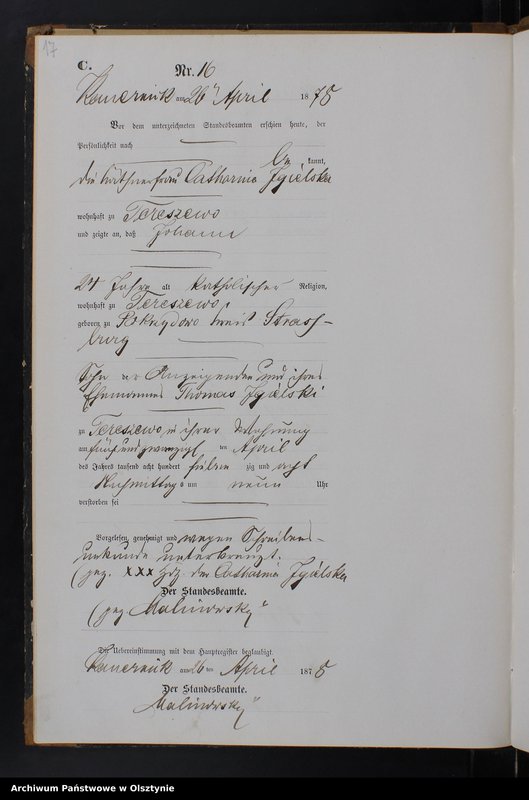 17
C.
Nr. 16
Kauernik am 26ten April 1878
Vor dem unterzeichneten Standesbeamten erschien heute, der
Persönlichkeit nach
be kannt,
die Käthnerfrau Catharina Jgielska
wohnhaft zu Tereszewo
und zeigte an, daß Johann
24 Jahre alt katholischer Religion,
wohnhaft zu Tereszewo,
geboren zu Pokrzydowo Kreis Stras-
burg
Sohn der Anzeigenden und ihres
Ehemannes Thomas Jgielski
zu Tereszewo in ihrer Wohnung
am fünfundzwanzigsten April
des Jahres tausend acht hundert sieben zig und acht
Nachmittags um neun Uhr
verstorben sei
Vorgelesen, genehmigt und wegen Schreibens-
unkunde unterkreuzt.
(gez. XXX Hdz. der Catharina Jgielska
Der Standesbeamte.
(gez Malinowsky
Die Uebereinstimmung mit dem Hauptregister beglaubigt.
Kauernik am 26 ten April 1878
Der Standesbeamte.
Malinowsky
Archiwum Państwowe w Olsztynie